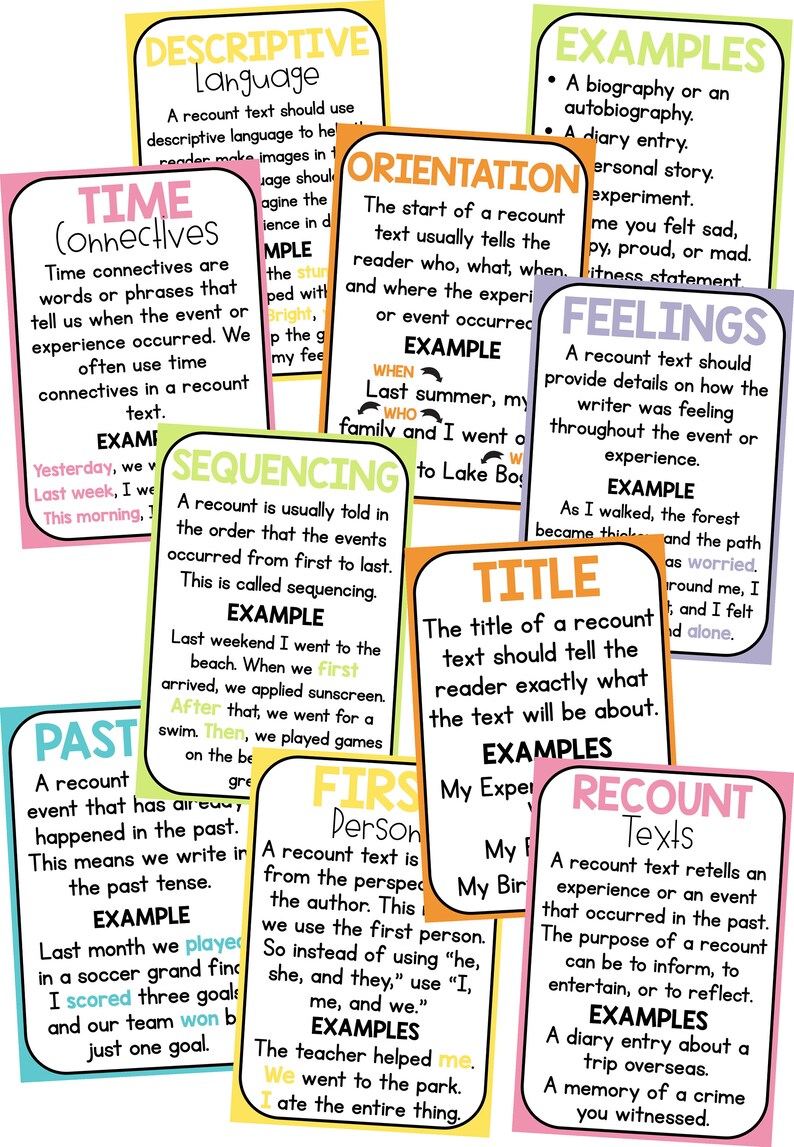 DESCRIPTIVE
Language
A recount text should use
descriptive language to help
reader make images in
should
imagine the
in
the
with
Bright,
the
my
EXAMPLES
• A biography or an
autobiography.
• A diary entry.
personal story.
experiment.
me you felt sad,
py, proud, or mad.
witness statement.
TIME
Connectives
Time connectives are
words or phrases that
tell us when the event or
experience occurred. We
often use time
connectives in a recount
text.
Yesterday, we
Last week, I
This morning, I
ORIENTATION
The start of a recount
text usually tells the
reader who, what, when,
and where the
or event occurred
EXAMPLE
WHEN
Last summer, my
WHO
family and I went
to Lake
FEELINGS
A recount text should
provide details on how the
writer was feeling
throughout the event or
experience.
EXAMPLE
As I walked, the forest
became thicker, and the path
as worried.
around me, I
and I felt
alone.
SEQUENCING
A recount is usually told in
the order that the events
occurred from first to last.
This is called sequencing.
EXAMPLE
Last weekend I went to the
beach. When we first
arrived, we applied sunscreen.
After that, we went for a
swim. Then, we played games
on the
TITLE
The title of a recount
text should tell the
reader exactly what
the text will be about.
EXAMPLES
My
My
My
PAST
A recount
event that has already
happened in the past.
This means we write in
the past tense.
EXAMPLE
Last month we played
in a soccer grand
I scored three goals
and our team won
just one goal.
FIRS
Person
A recount text is
from the
the author. This
we use the first person.
So instead of using “he,
she, and they,” use “I,
me, and we.”
EXAMPLES
The teacher helped me.
We went to the park.
I ate the entire thing.
RECOUNT
Texts
A recount text retells an
experience or an event
that occurred in the past.
The purpose of a recount
can be to inform, to
entertain, or to reflect.
EXAMPLES
A diary entry about a
trip overseas.
A memory of a crime
you witnessed.